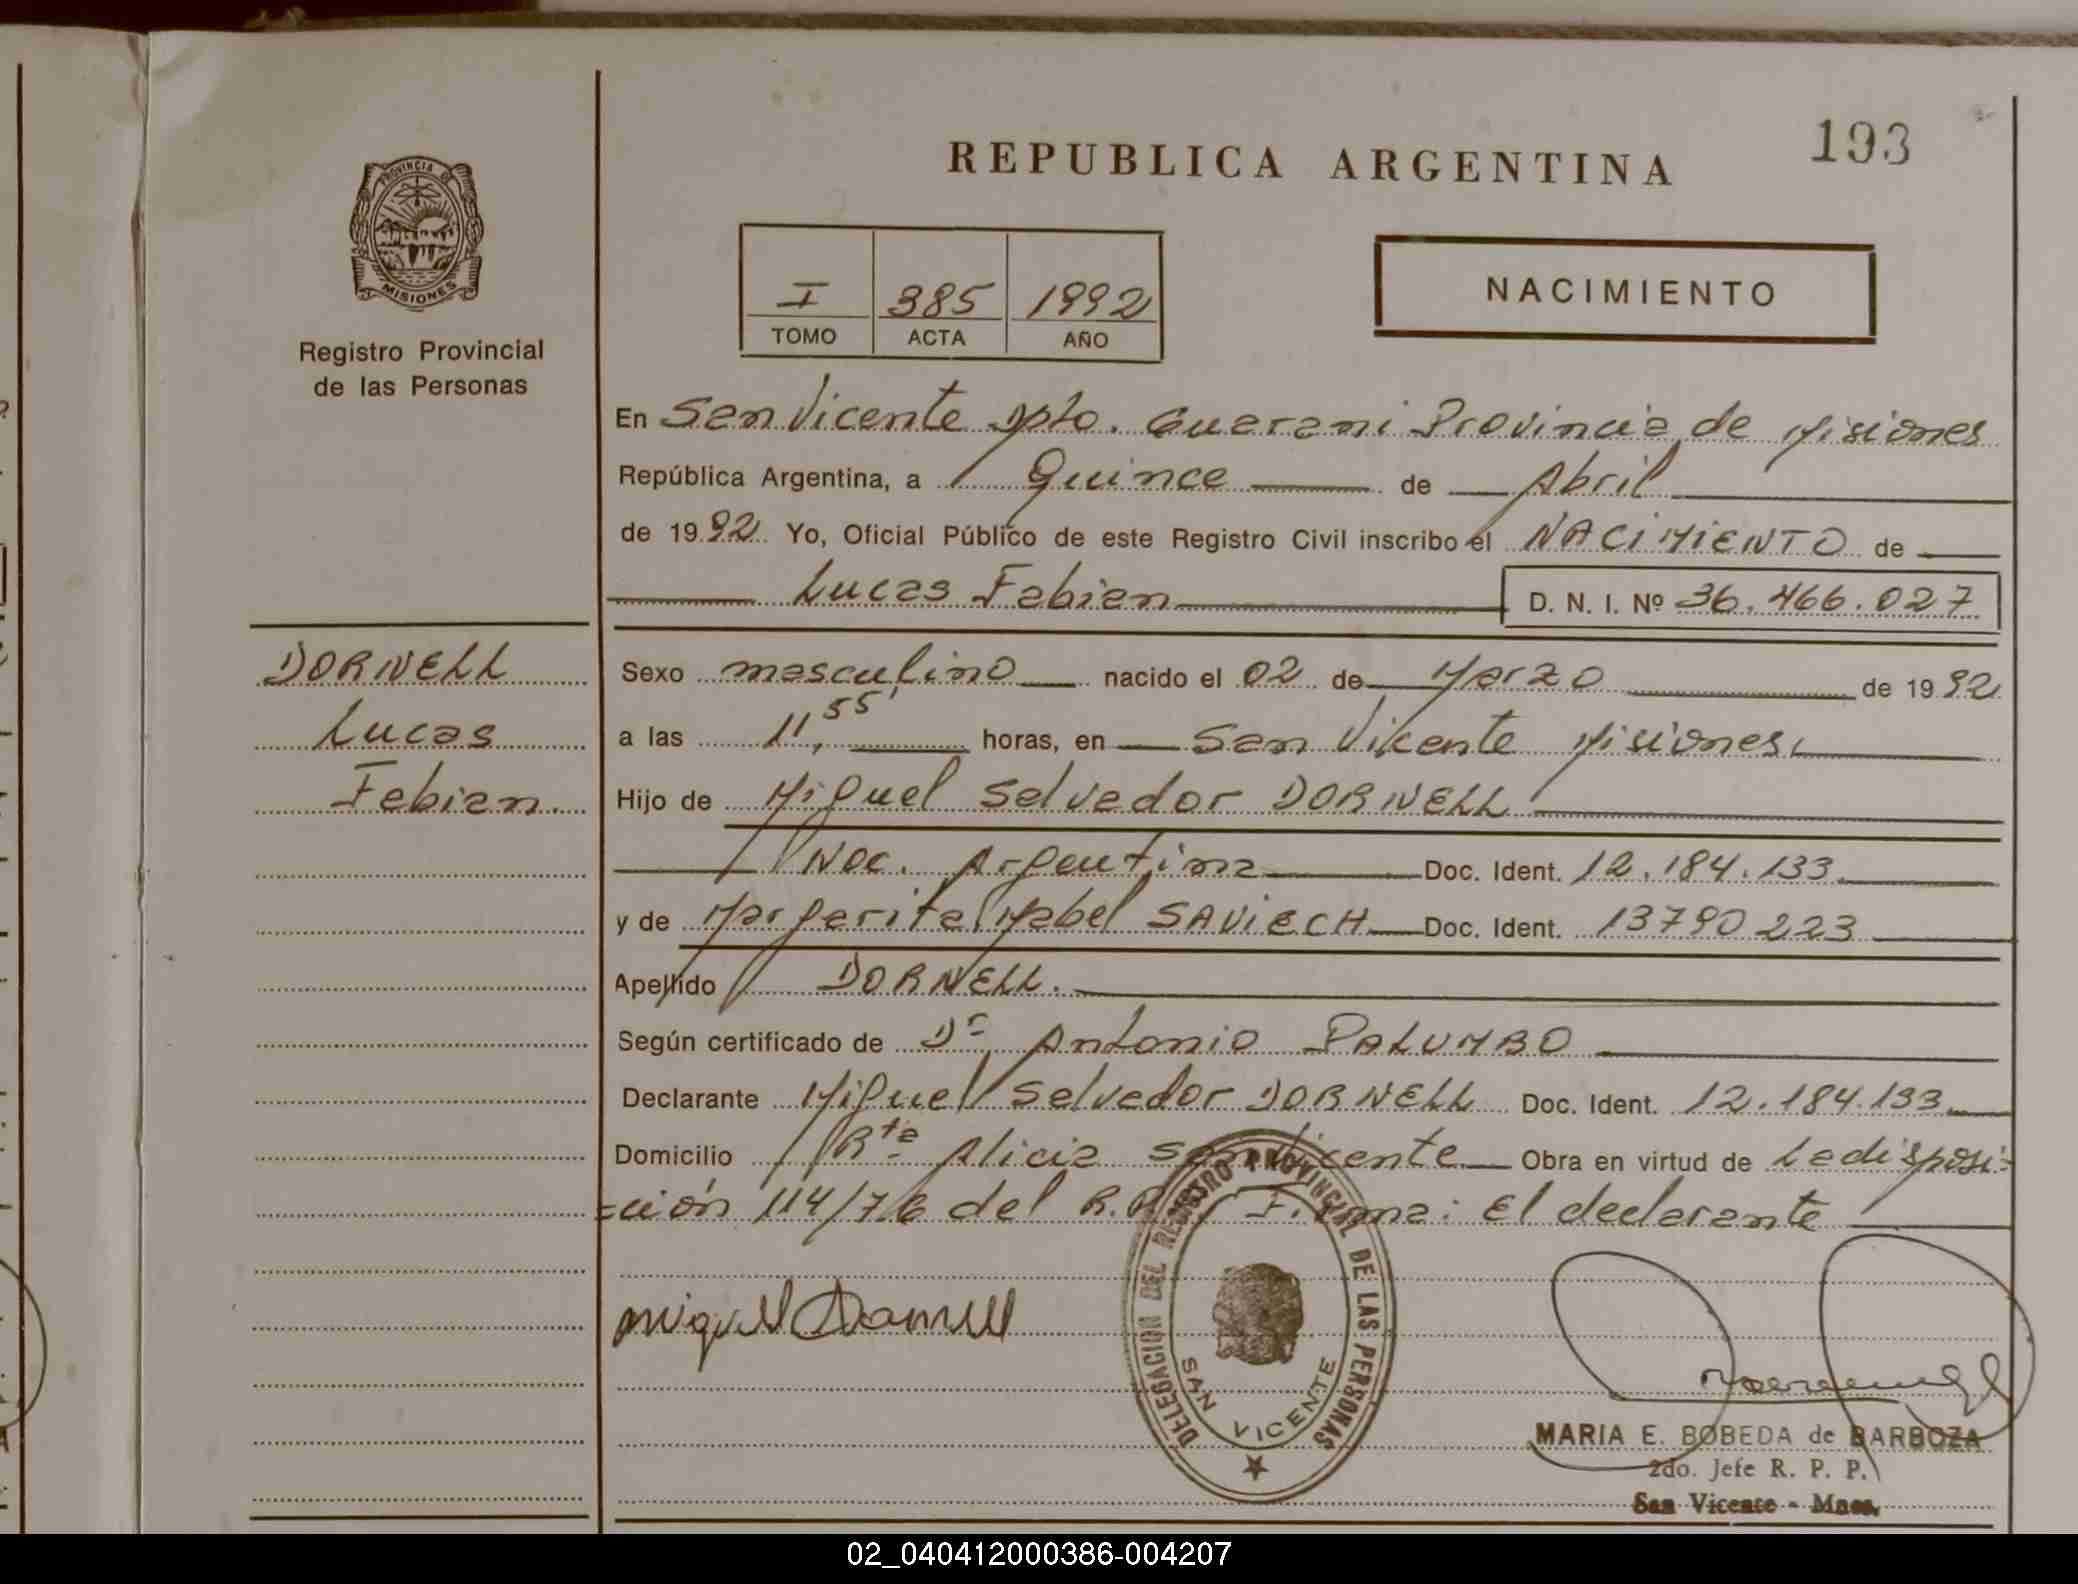 193
REPUBLICA ARGENTINA
PROVINCIA DE
MISIONES
Registro Provincial
de las Personas
I 385 1992
TOMO ACTA AÑO
NACIMIENTO
En San Vicente Dpto. Guarani Provincia de Misiones
República Argentina, a Quince de Abril
de 1992 Yo, Oficial Público de este Registro Civil inscribo el NACIMIENTO de
Lucas Fabian D. N. I. Nº 36.466.027
DORNELL
Lucas
Fabian.
Sexo masculino nacido el 02 de Marzo de 1992
a las 11,55 horas, en San Vicente Misiones
Hijo de Miguel Salvador DORNELL
Nac. Argentina Doc. Ident. 12.184.133
y de Margarita Mabel SAVIECH Doc. Ident. 13790223
Apellido DORNELL.
Según certificado de Dr Antonio PALUMBO
Declarante Miguel Salvador DORNELL Doc. Ident. 12.184.133
Domicilio Rta Alicia San Vicente Obra en virtud de La disposi-
ción 114/76 del R.P. Firma: El declarante
Miguel Dornell
DELEGACION DEL REGISTRO PROVINCIAL DE LAS PERSONAS
SAN VICENTE
MARIA E. BOBEDA de BARBOZA
2do. Jefe R. P. P.
San Vicente - Mnes.
02_040412000386-004207